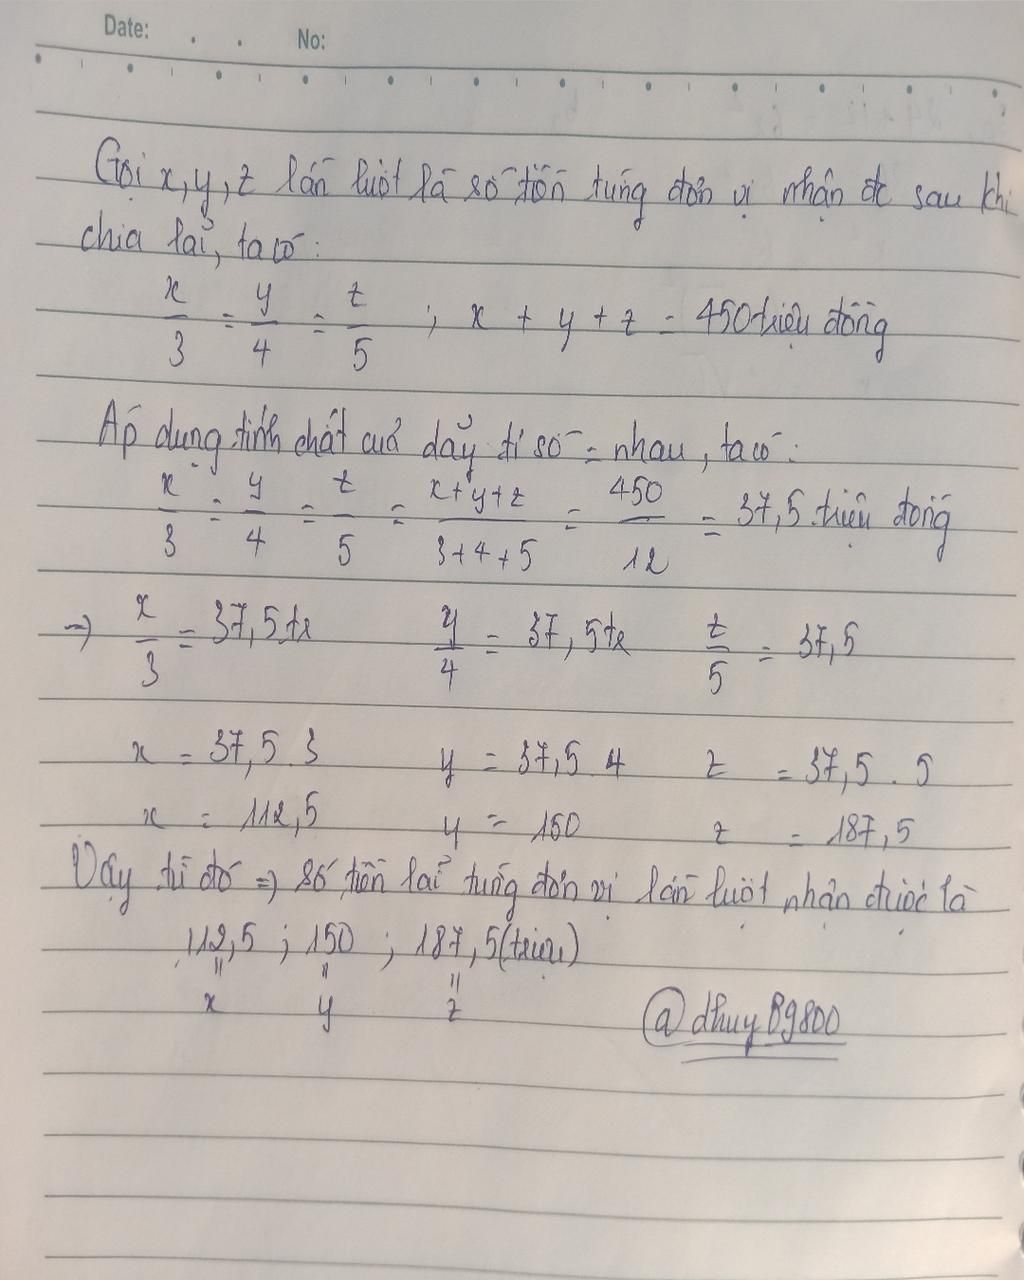 Date: . . No:
Gọi x, y, z lần lượt là số tiền từng đơn vị nhận đc sau khi
chia lãi, ta có:
x/3 = y/4 = z/5 ; x + y + z = 450 triệu đồng
Áp dụng tính chất của dãy tỉ số = nhau, ta có:
x/3 = y/4 = z/5 = x+y+z/3+4+5 = 450/12 = 37,5 triệu đồng
→ x/3 = 37,5 tr y/4 = 37,5 tr z/5 = 37,5
x = 37,5 . 3 y = 37,5 . 4 z = 37,5 . 5
x = 112,5 y = 150 z = 187,5
Vậy từ đó => số tiền lãi từng đơn vị lần lượt nhận được là
112,5 ; 150 ; 187,5 (triệu)
= = =
x y z
@dhuy89800